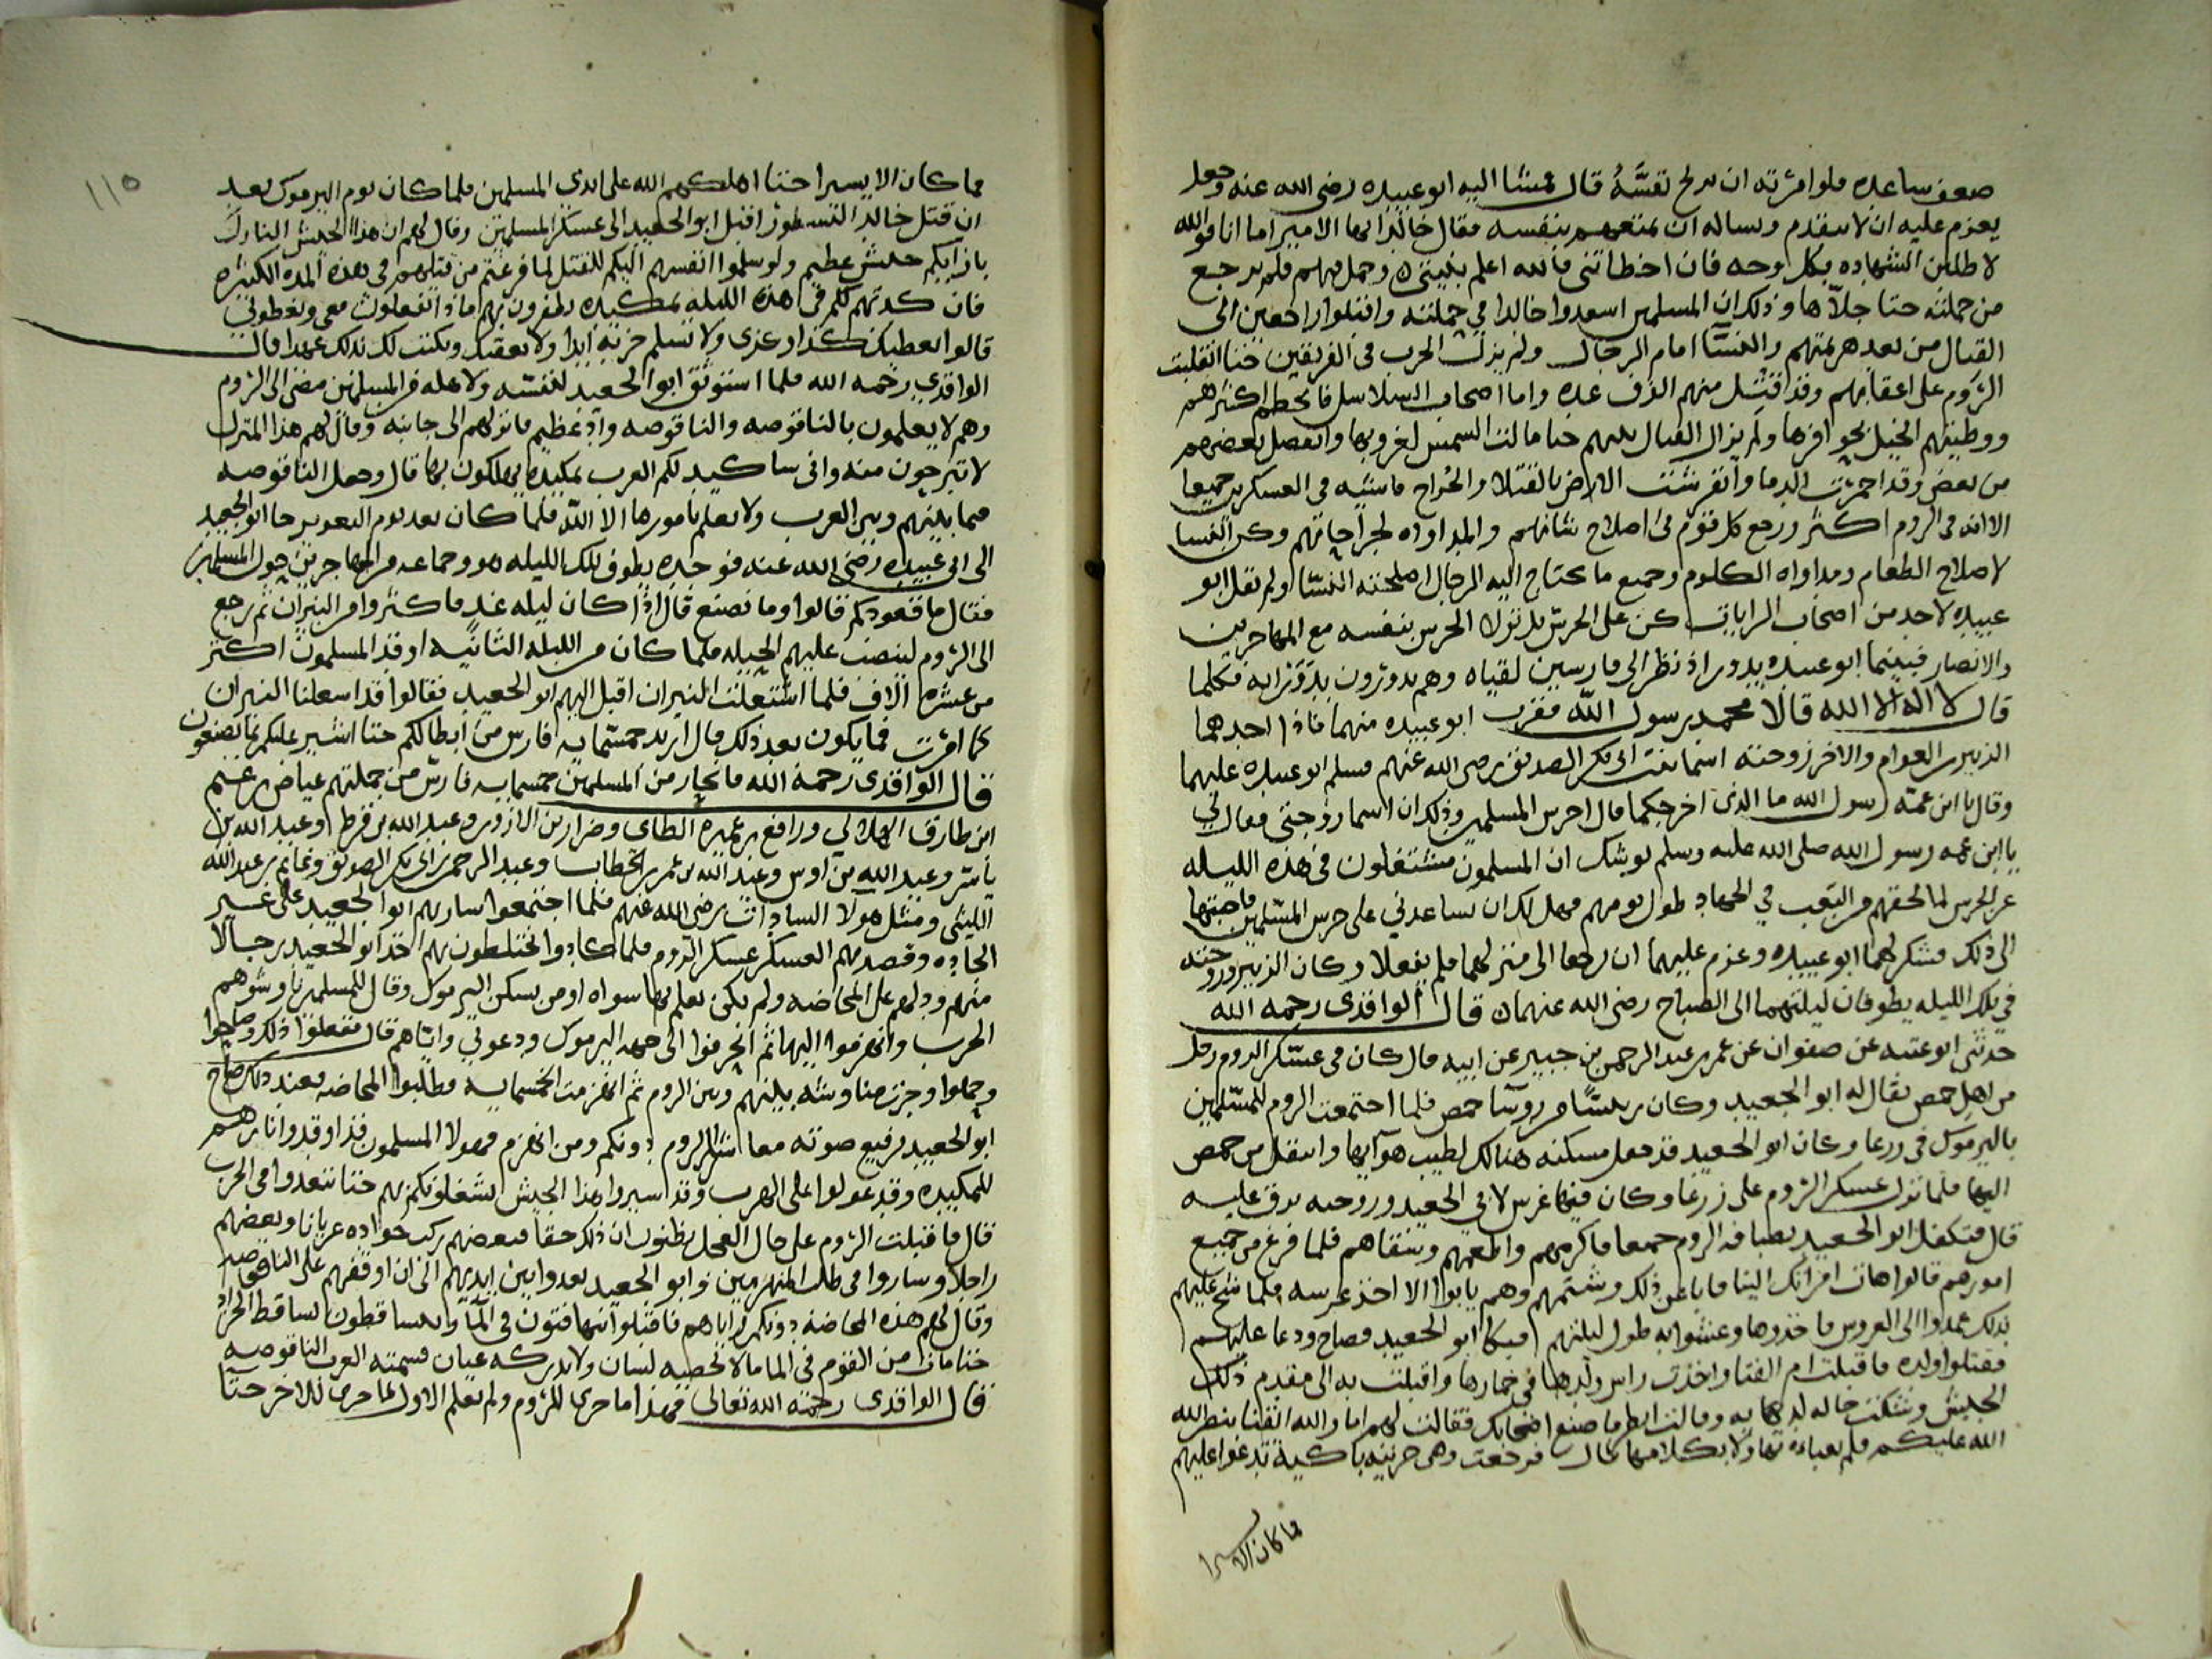 صعف ساعده فلو امرته ان يرمح نفسَهُ قال فمشا اليه ابو عبيده رضى الله عنه وجعل
يعزم عليه ان لا يتقدم ويساله ان يمنعهم بنفسه فقال خالد ايها الامير اما انا فوالله
لا طلبن الشهاده بكل وجه فان اخطاتنى فالله اعلم بنيتى وحمل فيهم فلم يرجع
من حملته حتا جلاّها وذلك ان المسلمين اسعدوا خالدا في حملته واقبلوا راجعين الى
القتال من بعد هزيمتهم والنسآ امام الرجال ولم يزل الحرب فى الفريقين حتا انقلبت
الرُوم على اعقابهم وقد اقتتل منهم الوف عده واما اصحاب السلاسل فانحطم اكثرهم
ووطيتهم الخيل بحوافرها ولم يزال القتال بينهم حتا مالت الشمس لغروبها وانفصل بعضهم
من بعض وقد احمرت الدما وانفرشت الارض بالقتلا والجُراح فاشيه فى العسكرين جميعا
الا انه فى الروم اكثر ورجع كل قوم فى اصلاح شانهم والمداواه لجراحاتهم وكن النسا
لاصلاح الطعام ومداواه الكلوم وجميع ما يحتاج اليه الرجال اصلحته النسّا ولم يقل ابو
عبيده لاحد من اصحاب الرايات كن على الحرس بل تولا الحرس بنفسه مع المهاجرين
والانصار فبينما ابو عبيده يدور اذ نظر الى فارسين لقياه وهم يدورون بدَوَرانه فكلما
قال لا اله الا الله قالا محمد رسول الله فقرب ابو عبيده منهما فاذا احدهما
الزبير بن العوام والاخر زوجته اسما بنت ابى بكر الصديق رضى الله عنهم فسلم ابو عبيده عليهما
وقال يا ابن عمّه رسول الله ما الذى اخرجكما قال احرس المسلمين وذلك ان اسما زوجتى قالت لي
يا ابن عمه رسول الله صلى الله عليه وسلم يوشك ان المسلمون مشتغلون فى هذه الليله
عن الحرس لما لحقهم من التعب في الجهاد طول يومهم فهل لك ان تساعدني على حرس المسلمين فاجبتها
الى ذلك فشكرهما ابو عبيده وعزم عليهما ان يرجعا الى منزلهما فلم يفعلا وكان الزبير وزوجته
في تلك الليله يطوفان ليلتهما الى الصباح رضى الله عنهما قال الواقدى رحمه الله
حدثنى ابو عتبه عن صفوان عن عمر بن عبد الرحمن بن جبير عن ابيه قال كان فى عسكر الروم رجل
من اهل حمص يقال له ابو الجعيد وكان ريسًا من روسا حمص فلما اجتمعت الروم للمسلمين
باليرموك فى زرعا وكان ابو الجعيد قد جعل مسكنه هنالك لطيب هوآيها وانتقل من حمص
اليها فلما نزل عسكر الروم على زرعا وكان فيها عرس لابي الجعيد وزوجه تزف عليه
قال فتكفل ابو الجعيد بضيافه الروم جميعا فاكرمهم واطعمهم وسقاهم فلما فرغ من جميع
امورهم قالوا هات امراتك الينا فابا عن ذلك وشتمهم وهم يابوا الا اخذ عرسه فلما شح عليهم
بذلك عمدوا الى العروس فاخذوها وعبثوا به طول ليلتهم فبكا ابو الجعيد وصاح ودعا عليهم
فقتلوا ولده فاقبلت ام الفتا واخذت راس ولدها في خمارها واقبلت به الى مقدم ذلك
الجيش وشكت حاله لديه وقالت انظر ما صنع اصحابك فقالت لهم اما والله
الله عليكم فلم يعباه بها ولا بكلامها قال فرجعت وهى حزينه باكية تدعوا عليهم
فما كان الا يسيرا
١١٥
فما كان الا يسيرا حتا اهلكهم الله على ايدى المسلمين فلما كان يوم اليرموك بعد
ان قتل خالد النسطور اقبل ابو الجعيد الى عسكر المسلمين وقال لهم ان هذا الجيش النازل
بازايكم جيش عظيم ولو سلموا انفسهم اليكم للقتل لما فرغتم من قتلهم فى هذه المده الكثيره
فان كدتهم لكم فى هذه الليله بمكيده تظفرون بهم ماذا تفعلون معى وتعطونى
قالوا نعطيك كذا وكذى ولا تسلم جزيه ابدا ولا بعقبك ونكتب لك بذلك عهدا قال
الواقدي رحمه الله فلما استوثق ابو الجعيد لنفسه ولاهله من المسلمين مضى الى الروم
وهم لا يعلمون بالناقوصه والناقوصه واد عظيم فانزلهم الى جانبه وقال لهم هذا المنزل
لا تبرحون منه وانى ساكيد لكم العرب بمكيده يهلكون بها قال وجعل الناقوصه
فيما بينهم وبين العرب ولا يعلم بامورها الا الله فلما كان بعد يوم التعوير جا ابو الجعيد
الى ابى عبيده رضى الله عنه فوجده يطوف تلك الليله هو وجماعه من المهاجرين حول المسلمين
فقال ما قعودكم قالوا وما نصنع قال اذا كان ليله غد فاكثروا من النيران ثم رجع
الى الروم لينصب عليهم الحيله فلما كان من الليله الثانيه اوقد المسلمون اكثر
من عشره الاف فلما اشتعلت النيران اقبل اليهم ابو الجعيد فقالوا قد اشعلنا النيران
كما امرت فما يكون بعد ذلك قال اريد خمسمايه فارس من ابطالكم حتا اشير عليكم بما يصنعون
قال الواقدى رحمة الله فاختار من المسلمين خمسمايه فارس من جملتهم عياض بن غنم
ابن طارق الهلالى ورافع بن عميره الطاى وضرار بن الازور وعبد الله بن قرط وعبد الله بن
ياسر وعبد الله بن اوس وعبد الله بن عمر بن الخطاب وعبد الرحمن بن ابى بكر الصديق وغانم بن عبد الله
الليثى ومثل هولا السادات رضى الله عنهم فلما اجتمعوا سار بهم ابو الجعيد على غير
الجاده وقصد بهم العسكر عسكر الروم فلما كادوا يختلطون بهم اخذ ابو الجعيد رجالا
منهم ودلهم على المخاضه ولم يكن يعلم بها سواه او من يسكن اليرموك وقال للمسلمين ناوشوهم
الحرب وانهزموا اليها ثم انحرفوا الى جهه اليرموك ودعونى واياهم قال ففعلوا ذلك وصاحوا
وحملوا وجرت مناوشه بينهم وبين الروم ثم انهزمت الخمسمايه وطلبوا المخاضه فعند ذلك صاح
ابو الجعيد برفيع صوته معاشر الروم دونكم ومن انهزم فهولا المسلمون قد اوقدوا نارهم
للمكيده وقد عولوا على الهرب وقد اسيروا هذا الجيش لشغلونكم بهم حتا تبعدوا فى الحرب
قال فاقبلت الروم على حال العجل يظنون ان ذلك حقا فبعضهم ركب جواده عريانا وبعضهم
راجلا وساروا فى طلب المنهزمين وابو الجعيد يعدوا بين ايديهم الى ان اوقفهم على الناقوصه
وقال لهم هذه المخاضه دونكم واياهم فاقبلوا يتهافتون فى المآ ويتساقطون تساقط الجراد
حتا مات من القوم فى الما ما لا يحصيه لسان ولا يدركه عيان فسمته العرب الناقوصه
قال الواقدى رحمه الله تعالى فهذا ما جرى للروم ولم يعلم الاول بما جرى للاخر حتا